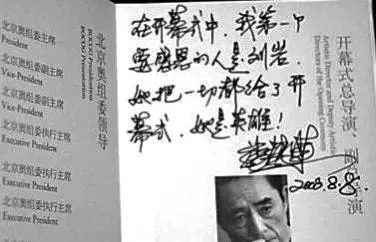 北京奥组委领导
BOCOG Presidentation
BOCOG Presentation
北京奥组委主席
President
北京奥组委副主席
Vice-President
北京奥组委副主席
Vice-President
北京奥组委执行主席
Executive President
北京奥组委执行主席
Executive President
北京奥组委执行主席
Executive President
在开幕式中，我第一个
要感恩的人是刘岩
她把一切都给了开
幕式，她是英雄！
2008.8.8.
开幕式总导演、副总导演
Artistic Director and Deputy Artistic
Directors of the Opening Ceremony